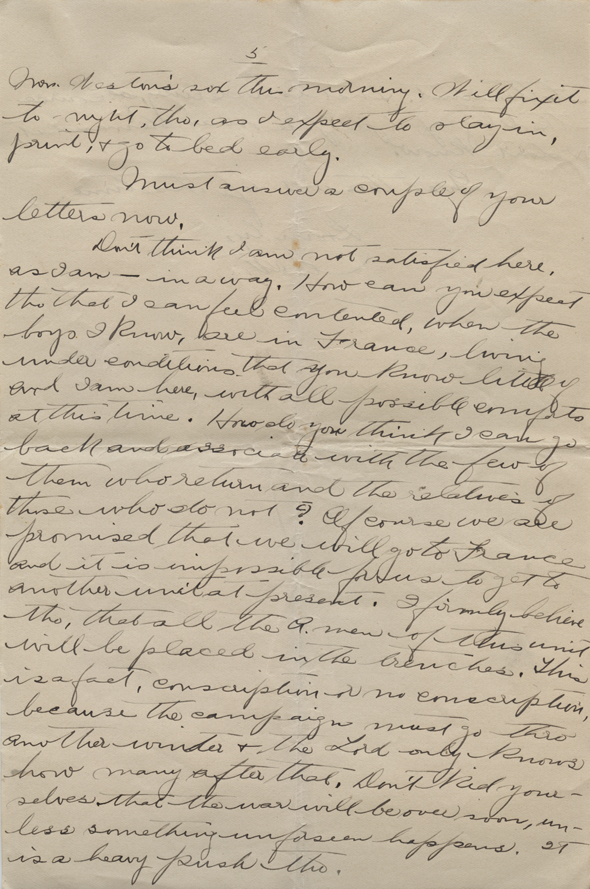 5
Mrs. Weston's sox this morning. Will fix it
to night, tho, as I expect to stay in,
print, & go to bed early.
Must answer a couple of your
letters now.
Don't think I am not satisfied here,
as I am — in a way. How can you expect
tho that I can feel contented, when the
boys I know, are in France, living
under conditions that you know little of
and I am here, with all possible comforts
at this time. How do you think I can go
back and associate with the few of
them who return and the relatives of
those who do not? Of course we are
promised that we will go to France
and it is impossible for us to get to
another unit at present. I firmly believe
tho, that all the A. men of this unit
will be placed in the trenches. This
is a fact, conscription or no conscription,
because the campaign must go thro
another winter & the Lord only knows
how many after that. Don't kid your-
selves that the war will be over soon, un-
less something unforseen happens. It
is a heavy push tho.